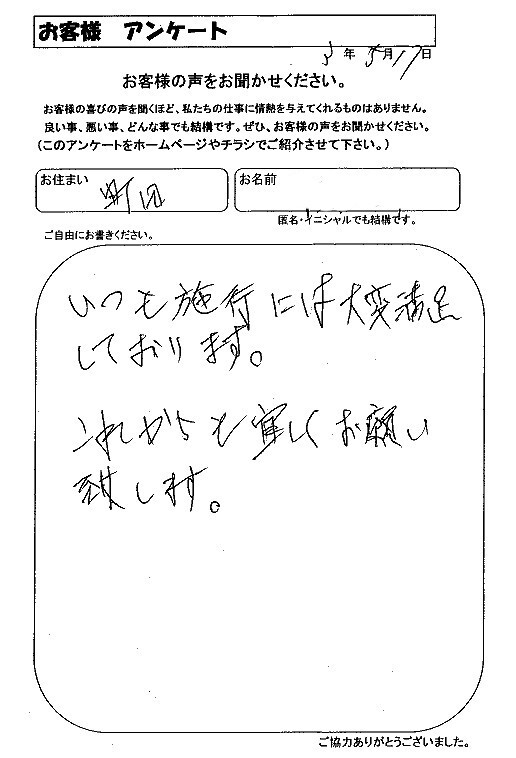 お客様 アンケート
3年5月17日
お客様の声をお聞かせください。
お客様の喜びの声を聞くほど、私たちの仕事に情熱を与えてくれるものはありません。
良い事、悪い事、どんな事でも結構です。ぜひ、お客様の声をお聞かせください。
(このアンケートをホームページやチラシでご紹介させて下さい。)
お住まい 町田
お名前
匿名・イニシャルでも結構です。
ご自由にお書きください。
いつも施行には大変満足
しております。
これからも宜しくお願い
致します。
ご協力ありがとうございました。